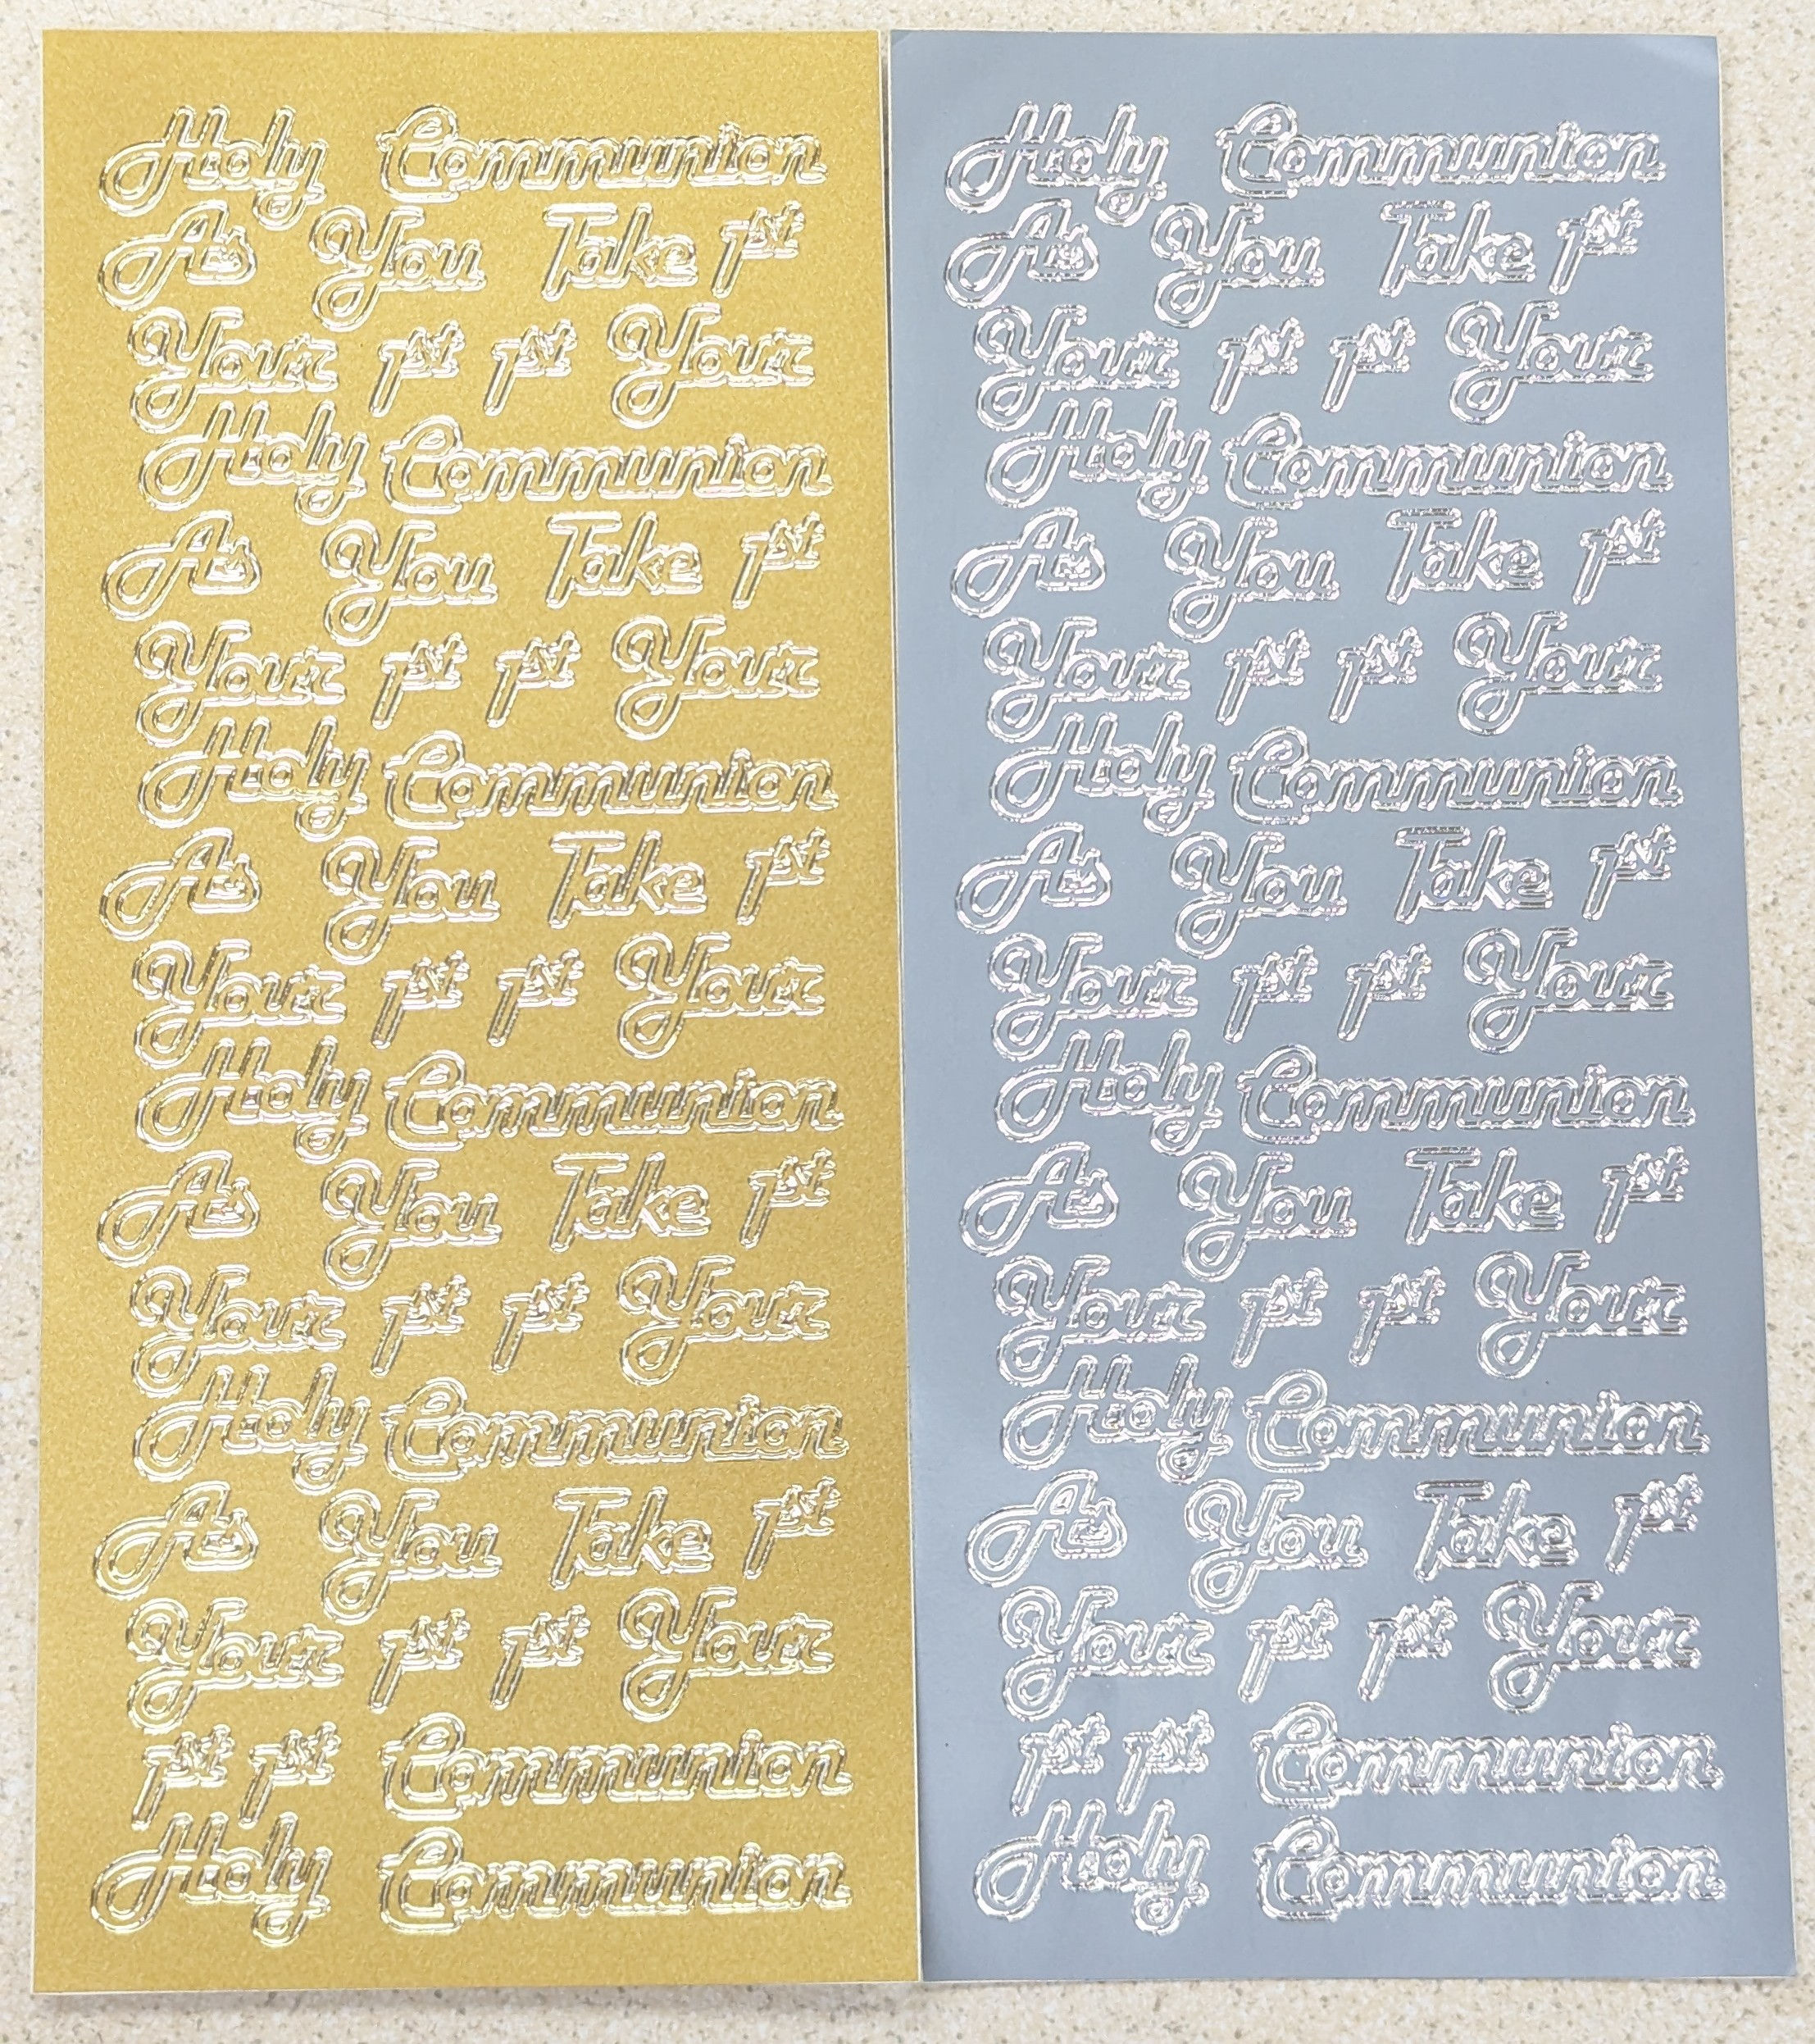 Holy Communion
As You Take 1st
Your 1st 1st Your
Holy Communion
As You Take 1st
Your 1st 1st Your
Holy Communion
As You Take 1st
Your 1st 1st Your
Holy Communion
As You Take 1st
Your 1st 1st Your
Holy Communion
As You Take 1st
Your 1st 1st Your
1st 1st Communion
Holy Communion
Holy Communion
As You Take 1st
Your 1st 1st Your
Holy Communion
As You Take 1st
Your 1st 1st Your
Holy Communion
As You Take 1st
Your 1st 1st Your
Holy Communion
As You Take 1st
Your 1st 1st Your
Holy Communion
As You Take 1st
Your 1st 1st Your
1st 1st Communion
Holy Communion